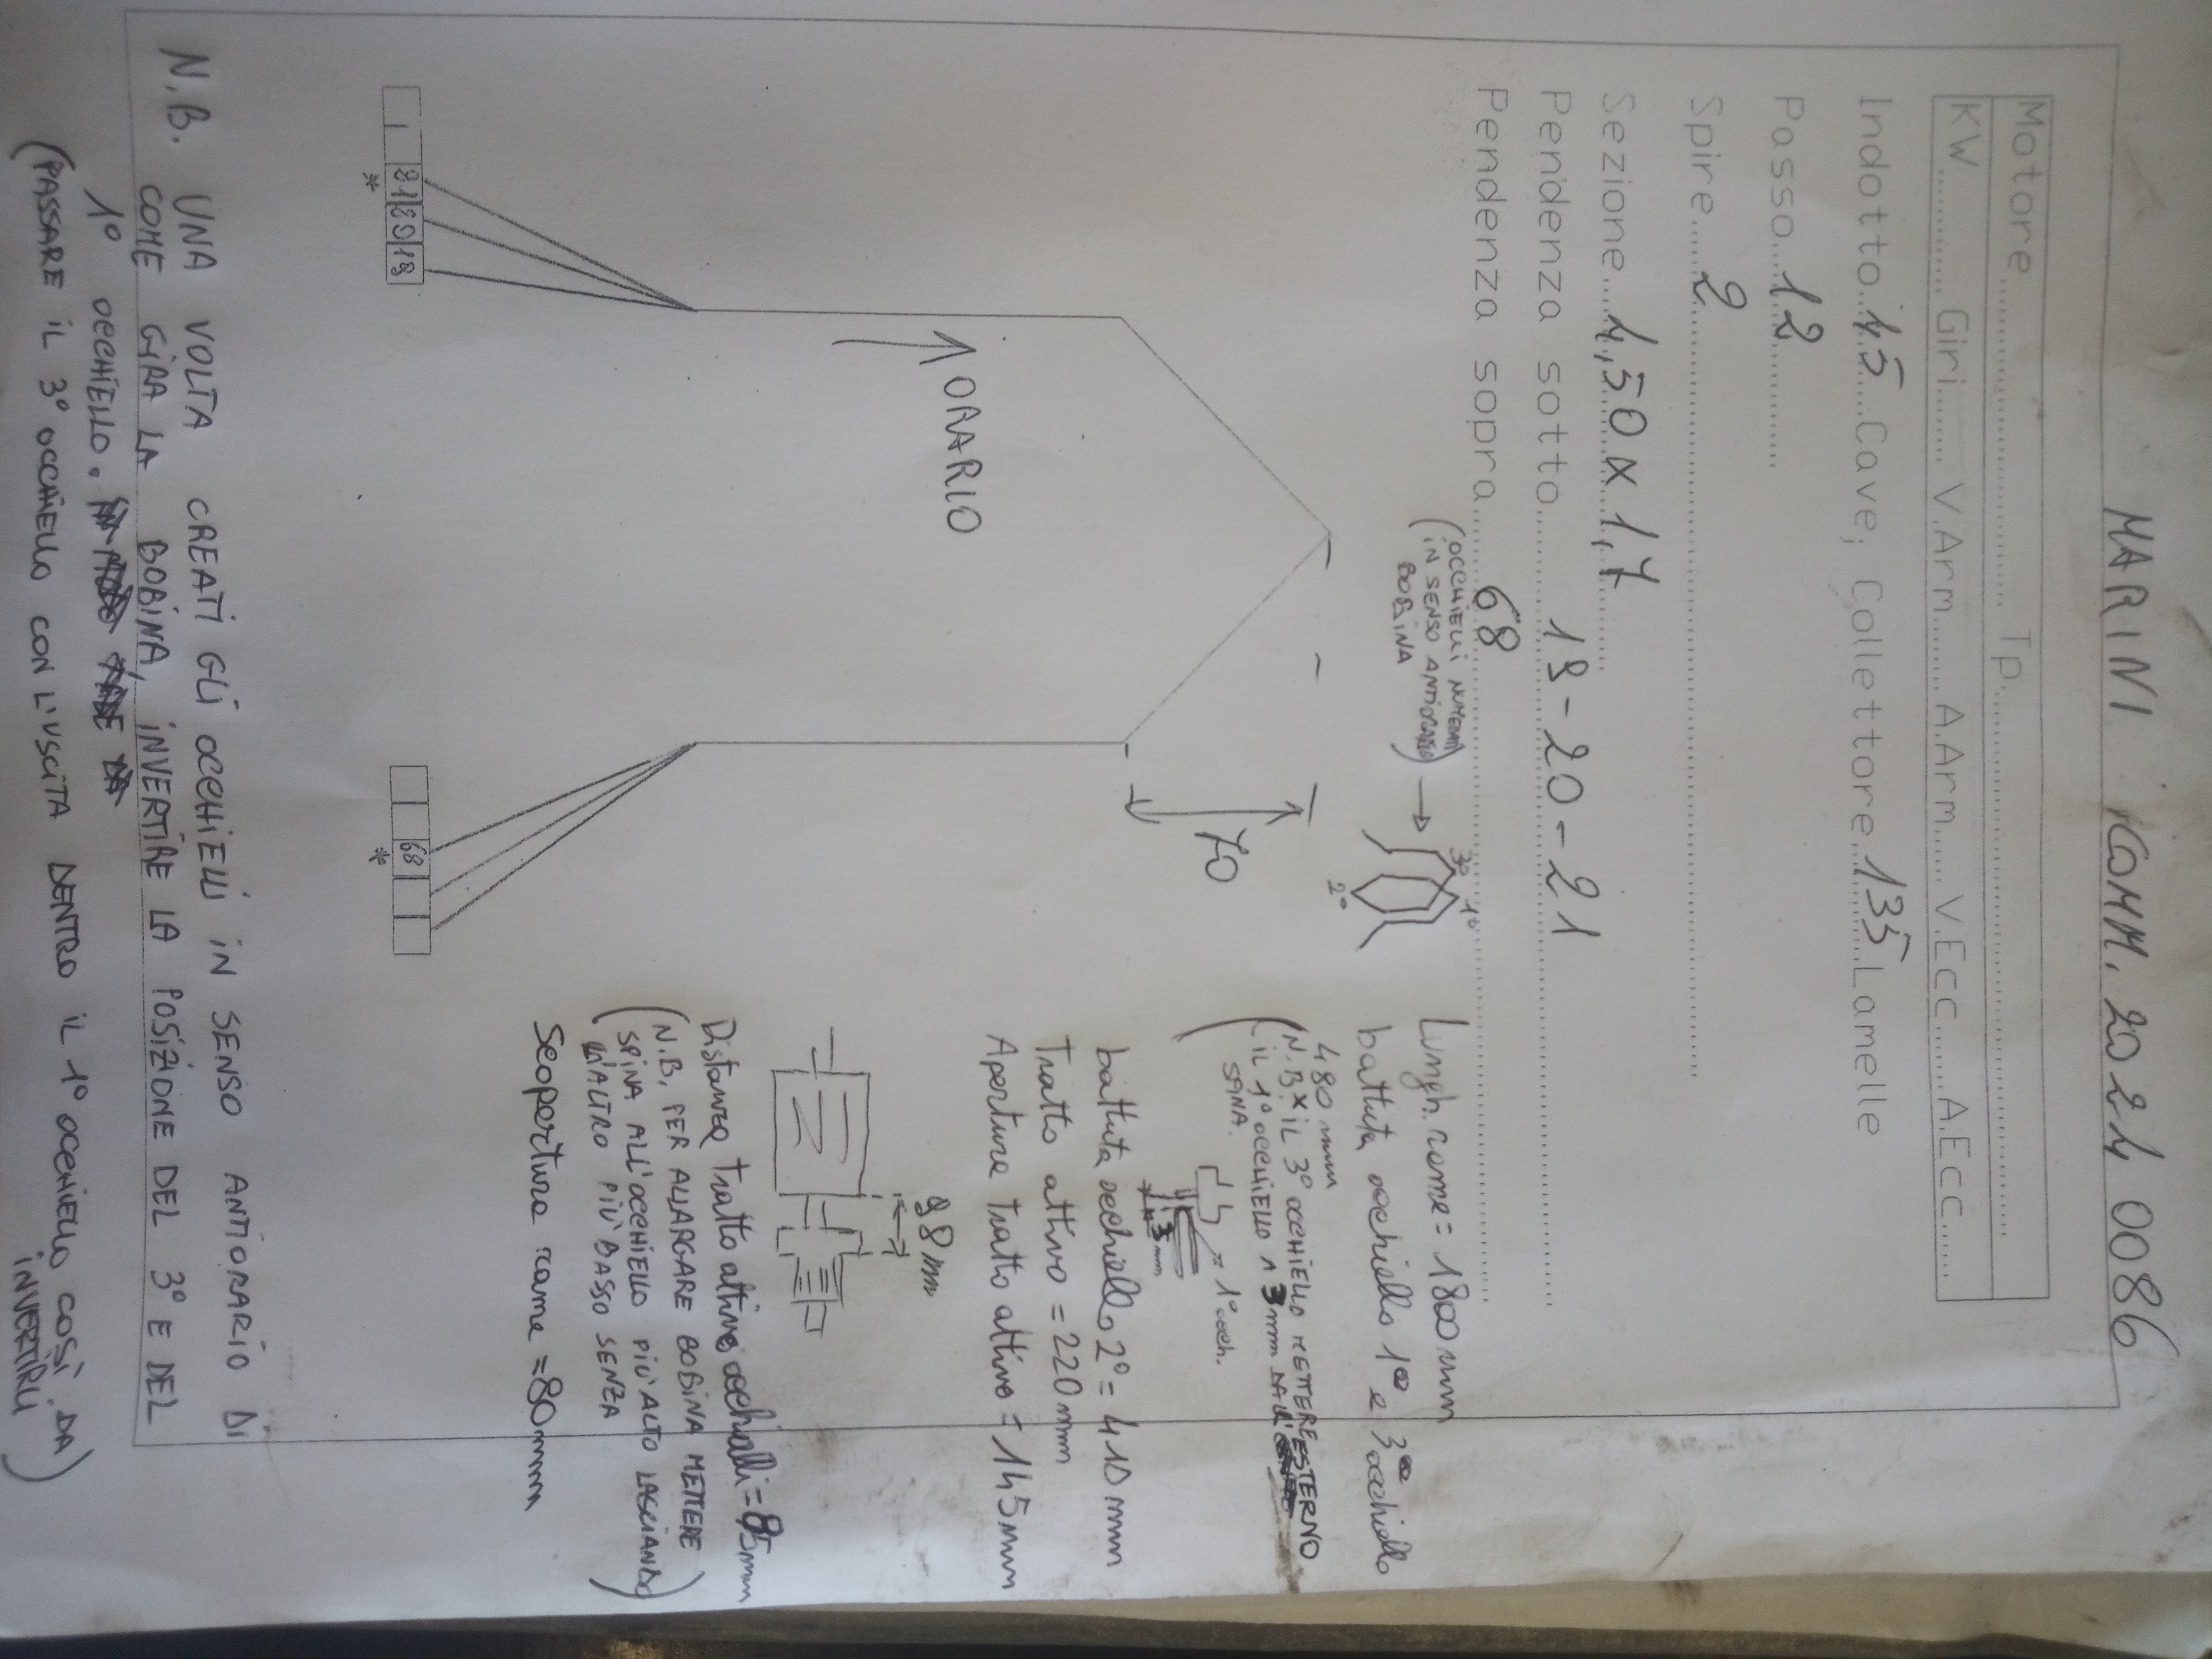 MARINI COMM. 2024 0086
Motore.............................. Tp...............................
KW........... Giri....... V.Arm....... A.Arm....... V.Ecc....... A.Ecc.......
Indotto..45...Cave; Collettore.135..Lamelle
Passo...12............
Spire.....2......................................................
Sezione...4,50 x 1,7.........
Pendenza sotto...... 19-20-21 ..............................
Pendenza sopra...... 68 ..............................
(OCCHIELLI NUMERATI
IN SENSO ANTIORARIO)
BOBINA
3º
1º
2º
70
ORARIO
21 20 19
*
68
*
Lungh. rame = 1800 mm
battuta occhiello 1º e 3º occhiello
480 mm
(N.B x IL 3º OCCHIELLO METTERE ESTERNO
IL 1º OCCHIELLO 13 mm DALL'
SPINA.
= 1º occh.
13 mm
battuta occhiello 2º = 410 mm
Tratto attivo = 220 mm
Apertura tratto attivo = 145 mm
98 mm
Distanza tratto attivo occhielli = 85 mm
(N.B. PER ALLARGARE BOBINA METTERE
SPINA ALL'OCCHIELLO PIÙ ALTO LASCIANDO
L'ALTRO PIÙ BASSO SENZA)
Scopertura rame = 80 mm
N.B. UNA VOLTA CREATI GLI OCCHIELLI IN SENSO ANTIORARIO DI
COME GIRA LA BOBINA, INVERTIRE LA POSIZIONE DEL 3º E DEL
1º OCCHIELLO.
(PASSARE IL 3º OCCHIELLO CON L'USCITA DENTRO IL 1º OCCHIELLO COSÌ DA
INVERTIRLI)